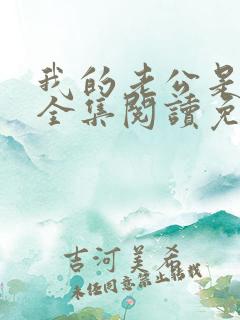 我的老公是
全集閱讀免
吉河美希
未经同意禁止转载